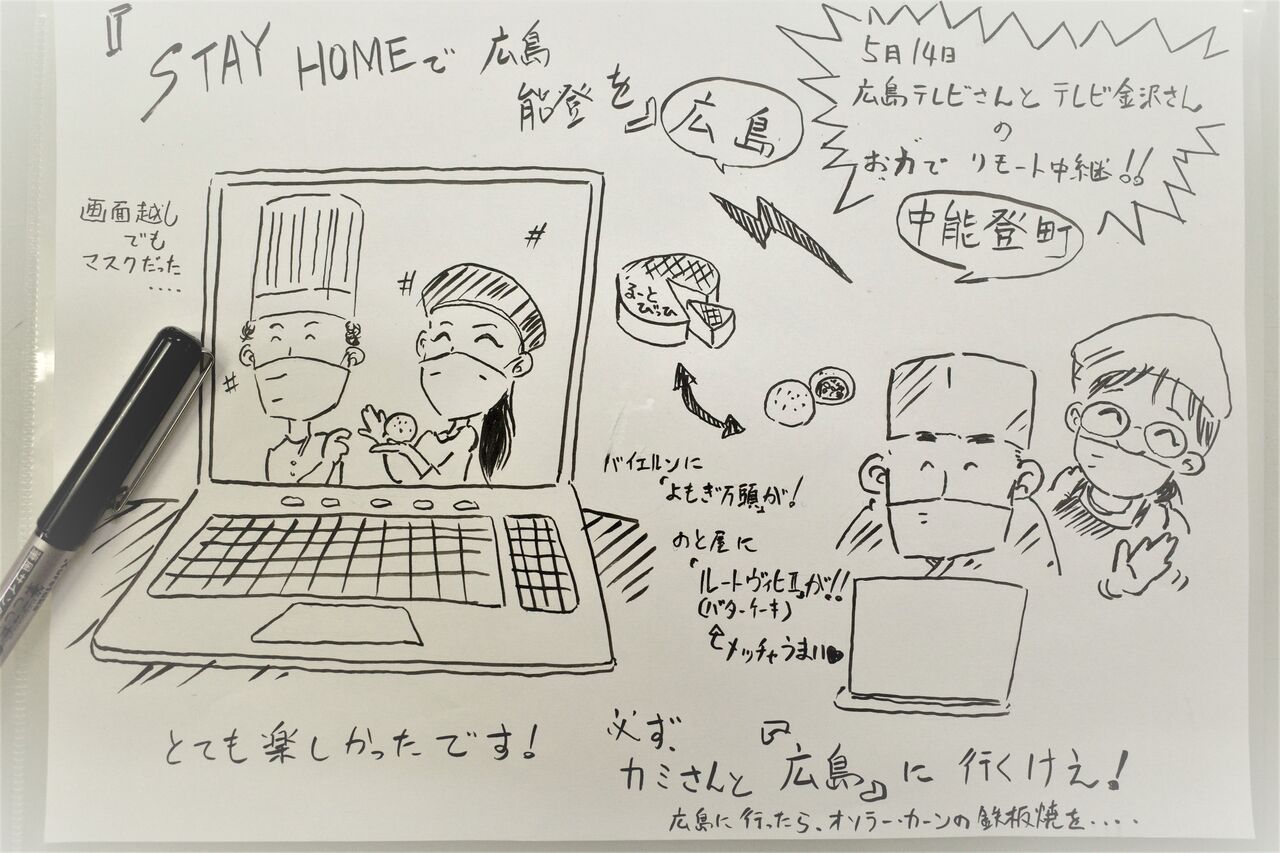 『STAY HOMEで 広島
能登を』
広島
5月14日
広島テレビさんと テレビ金沢さん
の
お力で リモート中継!!
中能登町
画面越し
でも
マスクだった
....
るーと
びっひ
バイエルンに
「よもぎ万頭」が!
のと屋に
「ルートヴィヒⅡ」が!!
(バターケーキ)
メッチャうまい♥
とても楽しかったです!
必ず、
カミさんと 『広島』に 行くけえ!
広島に行ったら、オソラー・カーンの鉄板焼を....